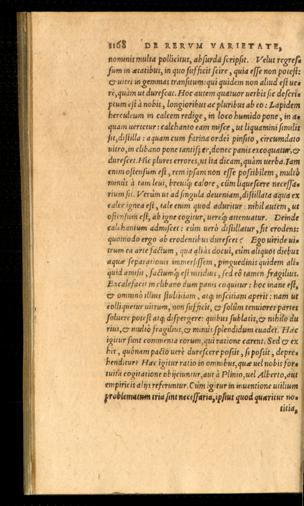 1168 DE RERVM VARIETATE,
nominis multa pollicitus, absurda scripsit. Velut regres
sum in ætatibus, in quo sufficit scire, quia esse non potest:
& uitri in gemmas transitum: qui quidem non aliud est ue
rè, quàm ut durescat. Hoc autem quatuor uerbis sic descri
ptum est à nobis, longioribus ac pluribus ab eo: Lapidem
herculeum in calcem redige, in loco humido pone, in a-
quam uertetur: calchanto eam misce, ut liquamini similis
sit, distilla: aquam cum farina ordei pinsito, circumdato
uitro, in clibano pone tantisper, donec panis excoquatur, &
durescet. Hic plures errores, ut ita dicam, quàm uerba. Iam
enim ostensum est, rem ipsam non esse possibilem, multò
minùs à tam leui, breuiq́ue calore, cùm liquescere necessa-
rium sit. Verùm ut ad singula deueniam, distillata aqua ex
calce ignea est, tale enim quod aduritur: nihil autem, ut
ostensum est, ab igne cogitur, uerùm attenuatur. Deinde
calchantum admiscet: cùm uerò distillatur, fit erodens:
quomodo ergo ab erodentibus durescet? Ego uiride ui-
trum ea arte factum, qua aliàs docui, cùm aliquot diebus
aquæ separationis immersissem, pinguedinis quidem ali-
quid amisit, factumq́ue est nitidius, sed eò tamen fragilius.
Excalefacit in clibano dum panis coquitur: hoc inane est,
& omninò illius stultitiam, atq́ue inscitiam aperit: nam ut
colliquetur uitrum, non sufficit, & solùm tenuiores partes
soluere potest atq́ue dispergere: quibus sublatis, & nihilo du
rius, & multò fragilius, & minùs splendidum euadet. Hæc
igitur sunt commenta eorum, qui ratione carent. Sed & ex
hìt, quònam pacto uerè durescere possit, si possit, depre-
henditur. Hæc igitur ratio in omnibus, quæ uel nobis for-
tuitò cogitatione obijciuntur, aut à Plinio, uel Alberto, aut
empiricis alijs referuntur. Cùm igitur in inuentione utilium
problematum tria sint necessaria, ipsius quod quæritur no-
titia,